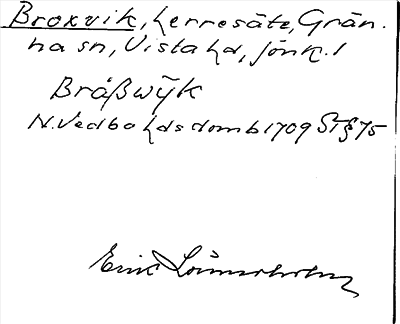 Broxvik, herresäte, Grän-
na sn, Vista hd, Jönk. l
Bråßwÿk
N. Vedbo hds domb 1709 § 75
Erik